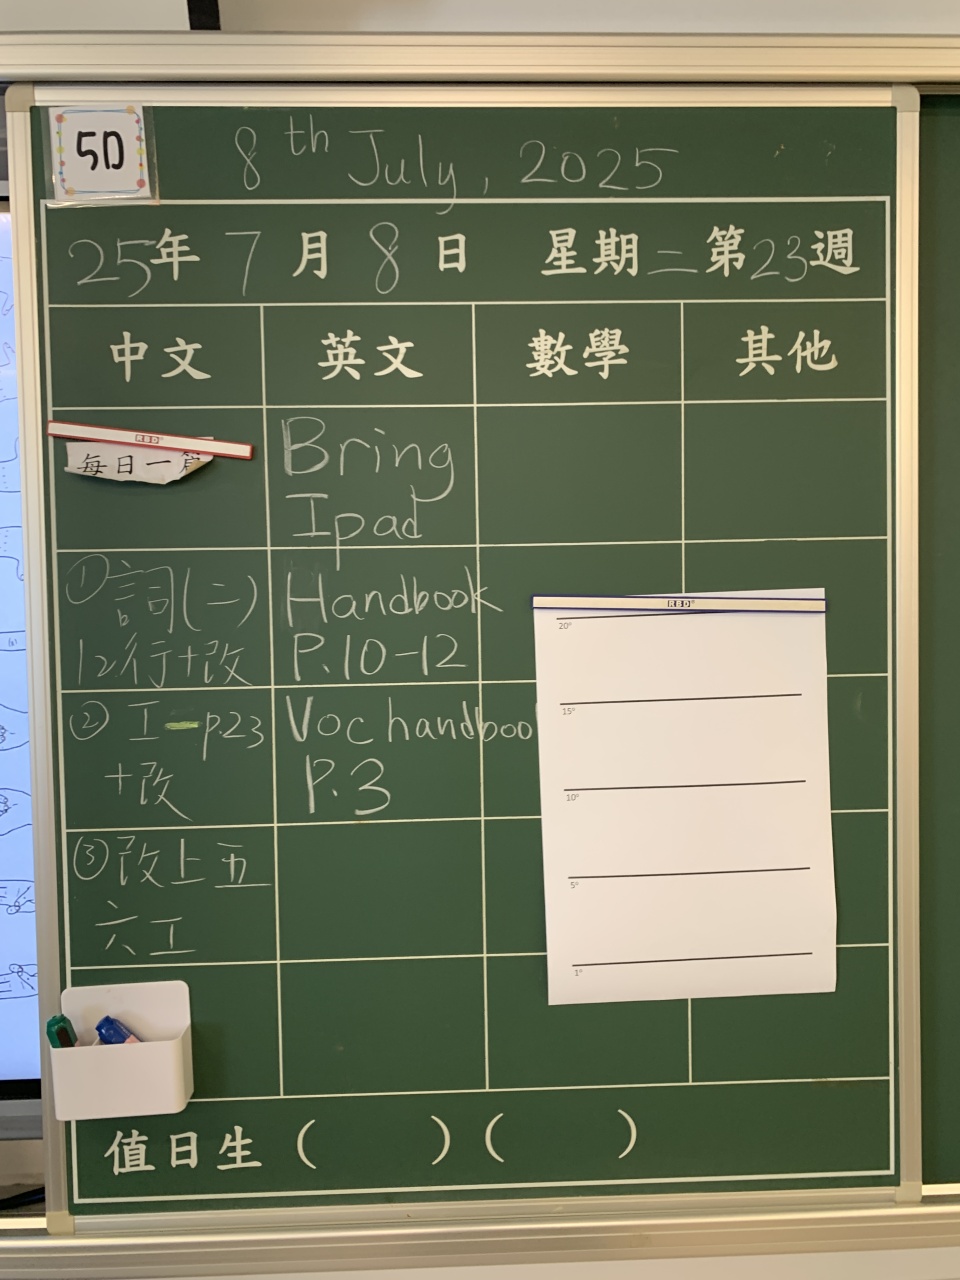 5D
8th July, 2025
25年7月8日 星期二第23週
中文 英文 數學 其他
RBD
每日一篇
Bring
Ipad
①詞(二)
12行+改
Handbook
P.10-12
RBD
20°
15°
10°
5°
1°
② 工-p.23
+改
Voc handboo
P.3
③改上五
六工
值日生( )( )